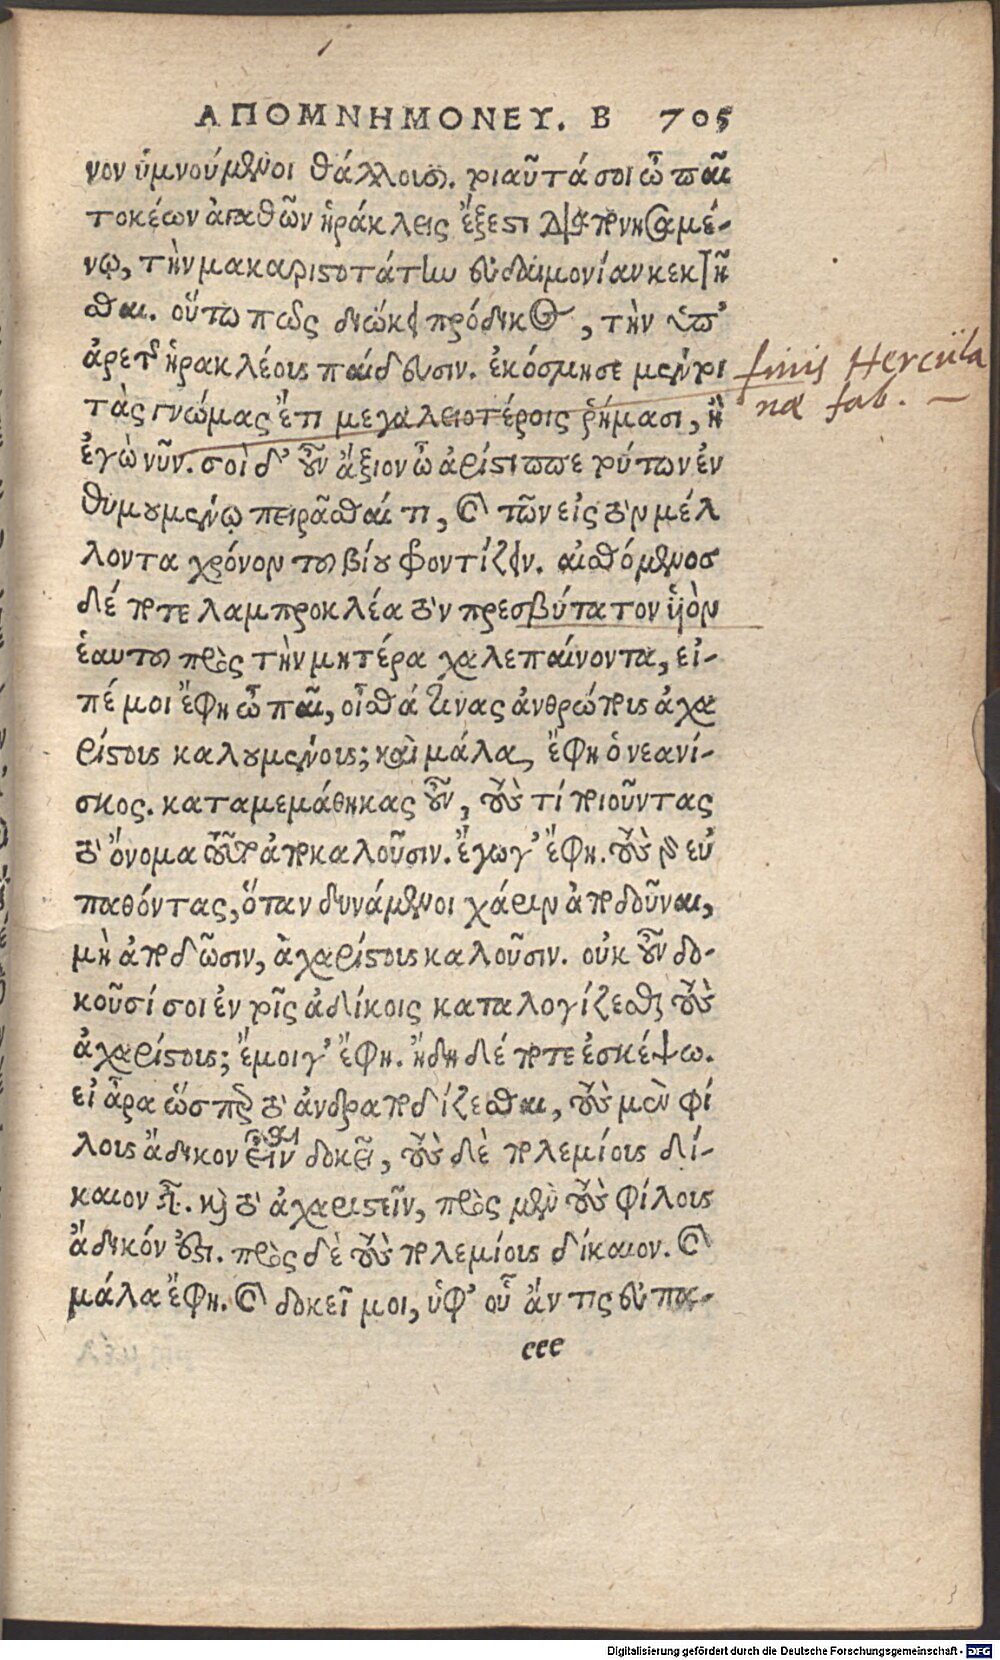 ΑΠΟΜΝΗΜΟΝΕΥ. Β 705
νον ὑμνούμενοι θάλλουσι. τοιαῦτά σοι ὦ παῖ
τοκέων ἀγαθῶν ἡράκλεις ἔξεστι διαπονησαμέ-
νῳ, τὴν μακαριστοτάτην εὐδαιμονίαν κεκτῆ
σθαι. οὕτω πως διώκει πρόδικος, τὴν ὑπ’
ἀρετῆς ἡρακλέους παίδευσιν. ἐκόσμησε μέντοι
τὰς γνώμας ἔτι μεγαλειοτέροις ῥήμασι, ἢ
ἐγὼ νῦν. σοὶ δ’ οὖν ἄξιον ὦ ἀρίστιππε τούτων ἐν
θυμουμένῳ πειρᾶσθαί τι, καὶ τῶν εἰς τὸν μέλ
λοντα χρόνον τοῦ βίου φροντίζειν. αἰσθόμενος
δέ ποτε λαμπροκλέα τὸν πρεσβύτατον ὑὸν
ἑαυτοῦ πρὸς τὴν μητέρα χαλεπαίνοντα, εἰ-
πέ μοι ἔφη ὦ παῖ, οἶσθά τινας ἀνθρώπους ἀχα
ρίστους καλουμένους; καὶ μάλα, ἔφη ὁ νεανί-
σκος. καταμεμάθηκας οὖν, τοὺς τί ποιοῦντας
τὸ ὄνομα τοῦτο ἀποκαλοῦσιν. ἔγωγ’ ἔφη. τοὺς γὰρ εὖ
παθόντας, ὅταν δυνάμενοι χάριν ἀποδοῦναι,
μὴ ἀποδῶσιν, ἀχαρίστους καλοῦσιν. οὐκ οὖν δο-
κοῦσί σοι ἐν τοῖς ἀδίκοις καταλογίζεσθαι τοὺς
ἀχαρίστους; ἔμοιγ’ ἔφη. ἤδη δέ ποτε ἐσκέψω.
εἰ ἆρα ὥσπερ τὸ ἀνδραποδίζεσθαι, τοὺς μὲν φί
λους ἄδικον εἶναι δοκεῖ, τοὺς δὲ πολεμίους δί-
καιον εἶναι. καὶ τὸ ἀχαριστεῖν, πρὸς μὲν τοὺς φίλους
ἄδικόν ἐστι. πρὸς δὲ τοὺς πολεμίους δίκαιον. καὶ
μάλα ἔφη. καὶ δοκεῖ μοι, ὑφ’ οὗ ἄν τις εὖ πα-
eee
finis Hercula
na fab. —
Digitalisierung gefördert durch die Deutsche Forschungsgemeinschaft - DFG